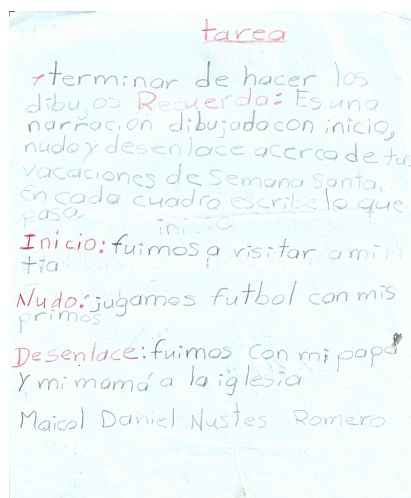 tarea
terminar de hacer los
dibujos Recuerda: Es una
narración dibujada con inicio,
nudo y desenlace acerca de tus
vacaciones de Semana Santa.
En cada cuadro escribe lo que
pasa
inicio
Inicio: fuimos a visitar a mi
tia
Nudo: jugamos futbol con mis
primos
Desenlace: fuimos con mi papá
Y mi mamá a la iglesia
Maicol Daniel Nustes Romero